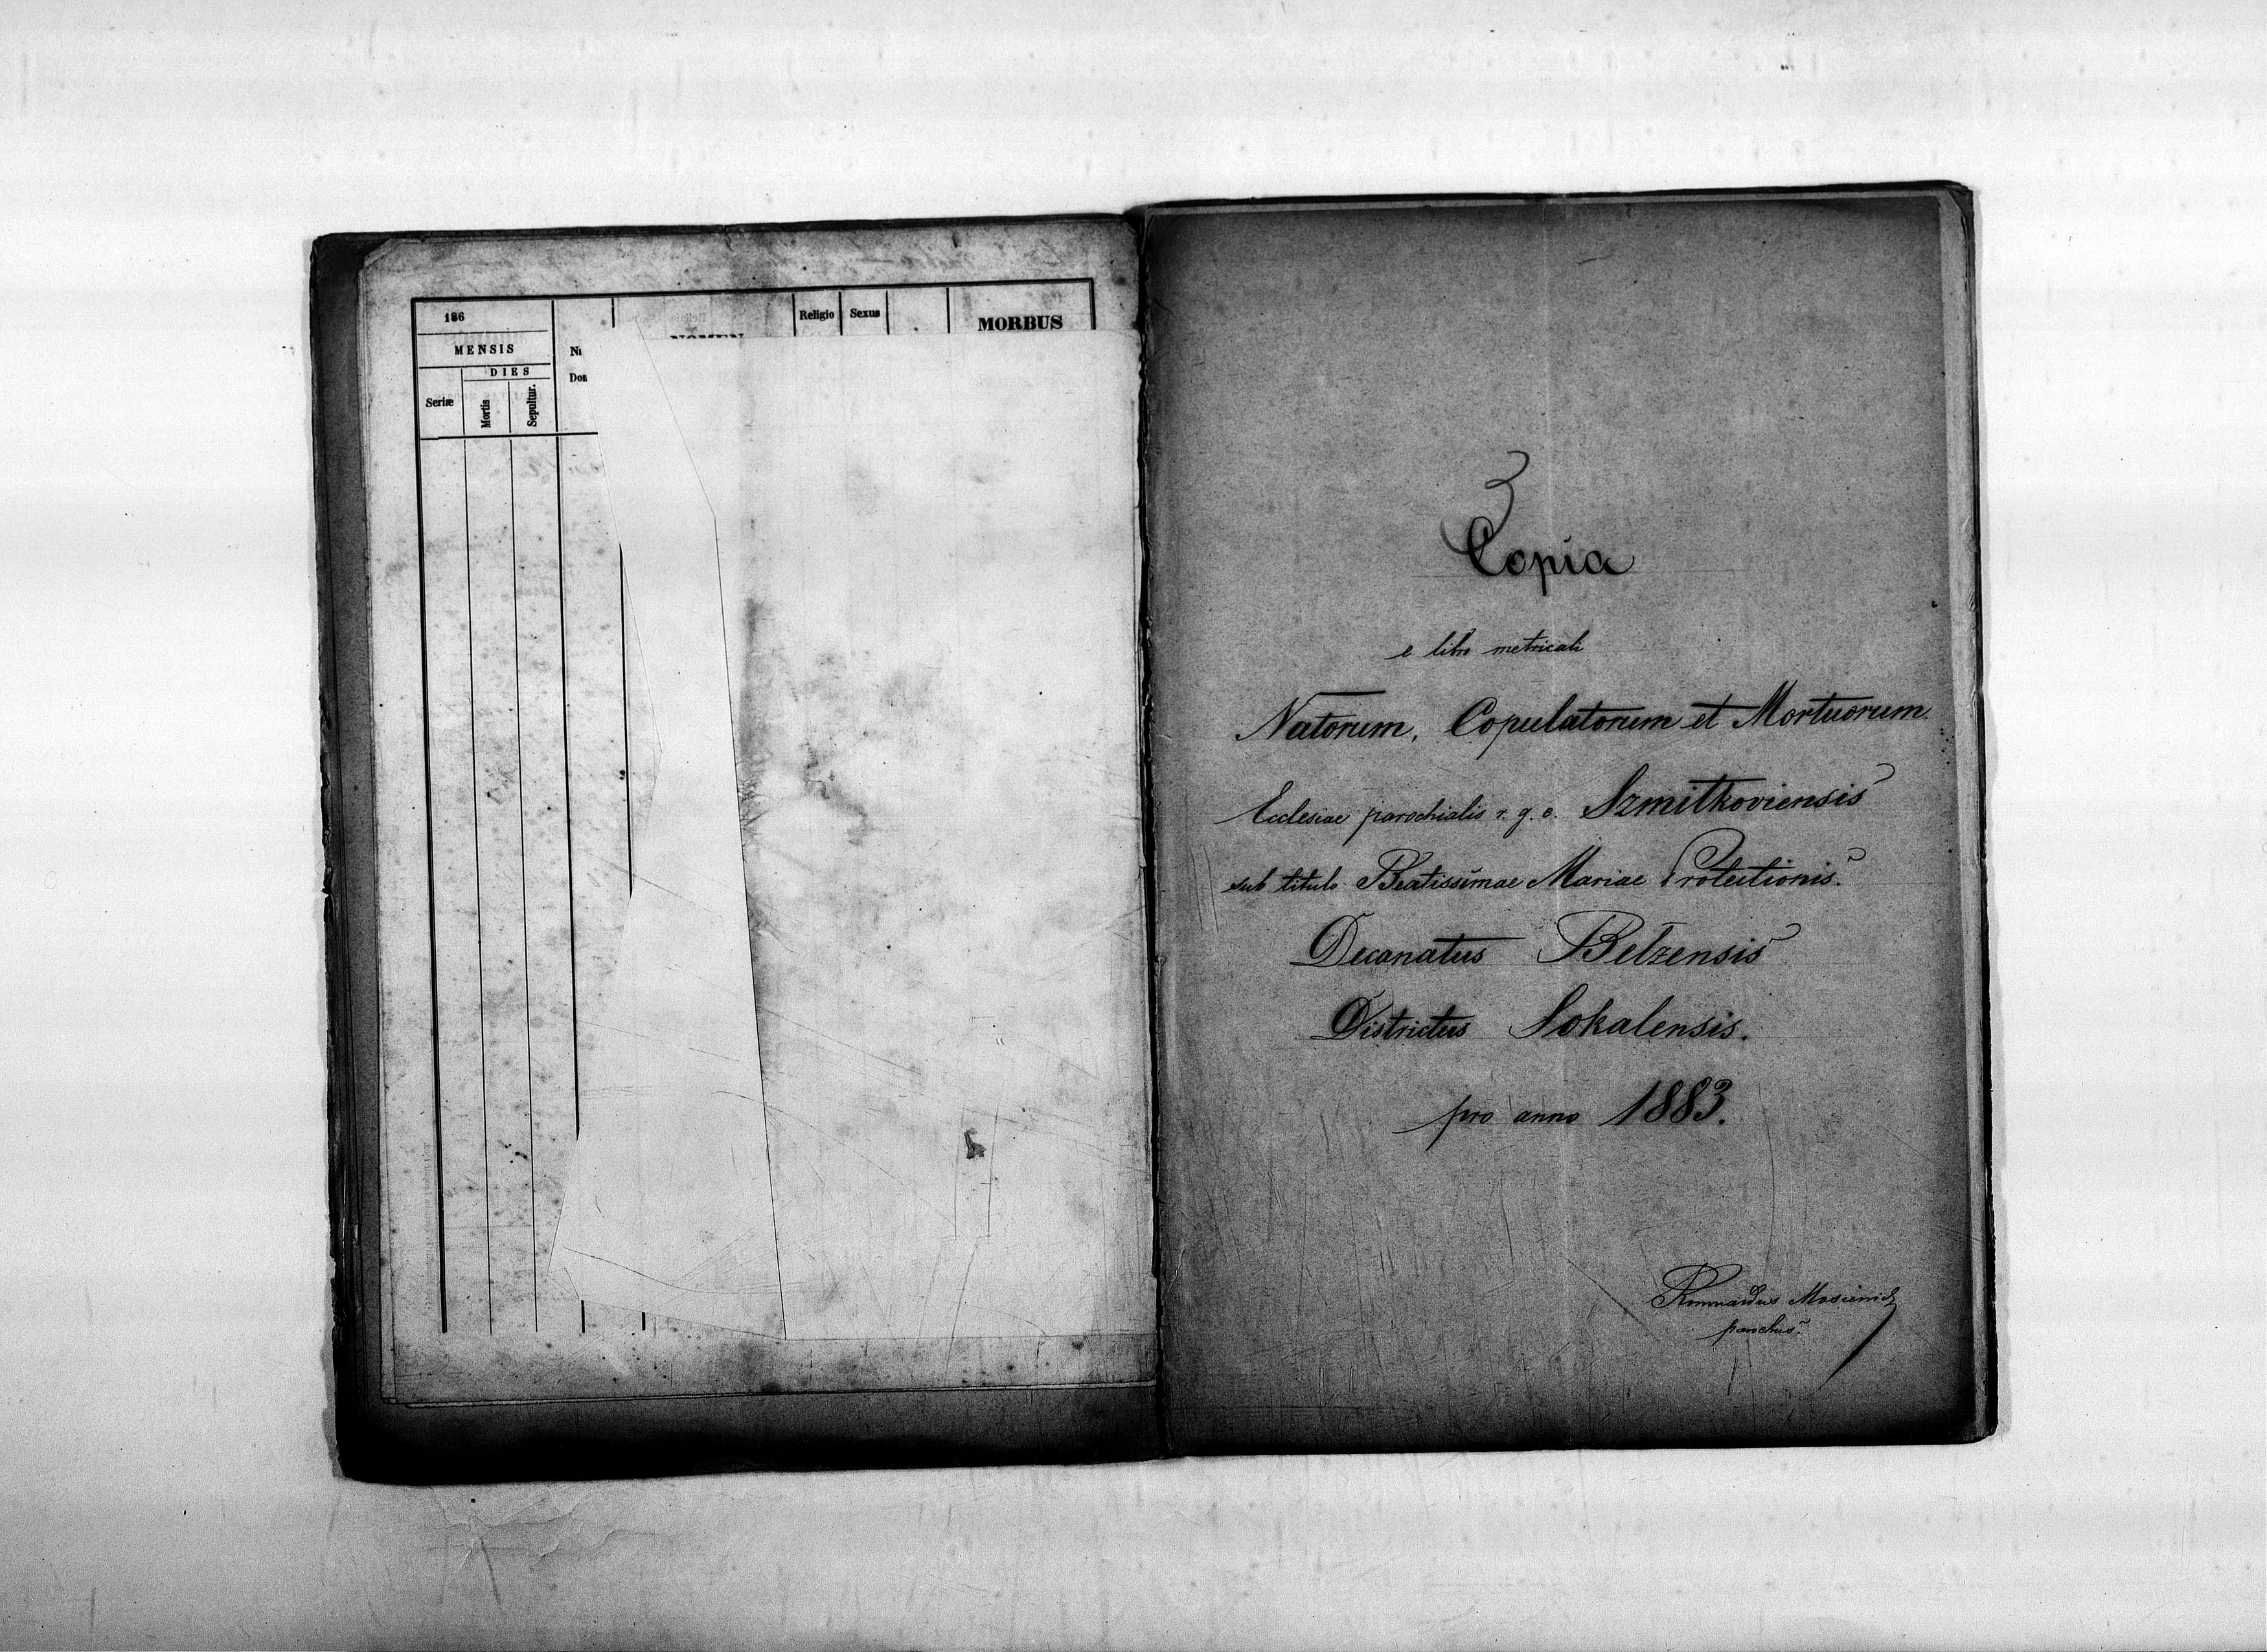 186
MENSIS
DIES
Seriæ
Mortis
Sepultur.
Religio
Sexus
MORBUS
3
Copia
e libro metricali
Natorum, Copulatorum et Mortuorum
Ecclesiae parochialis r. g. c. Szmitkoviensis
sub titulo Beatissimae Mariae Protectionis.
Decanatus Belzensis
Districtus Sokalensis.
pro anno 1883.
parochus.